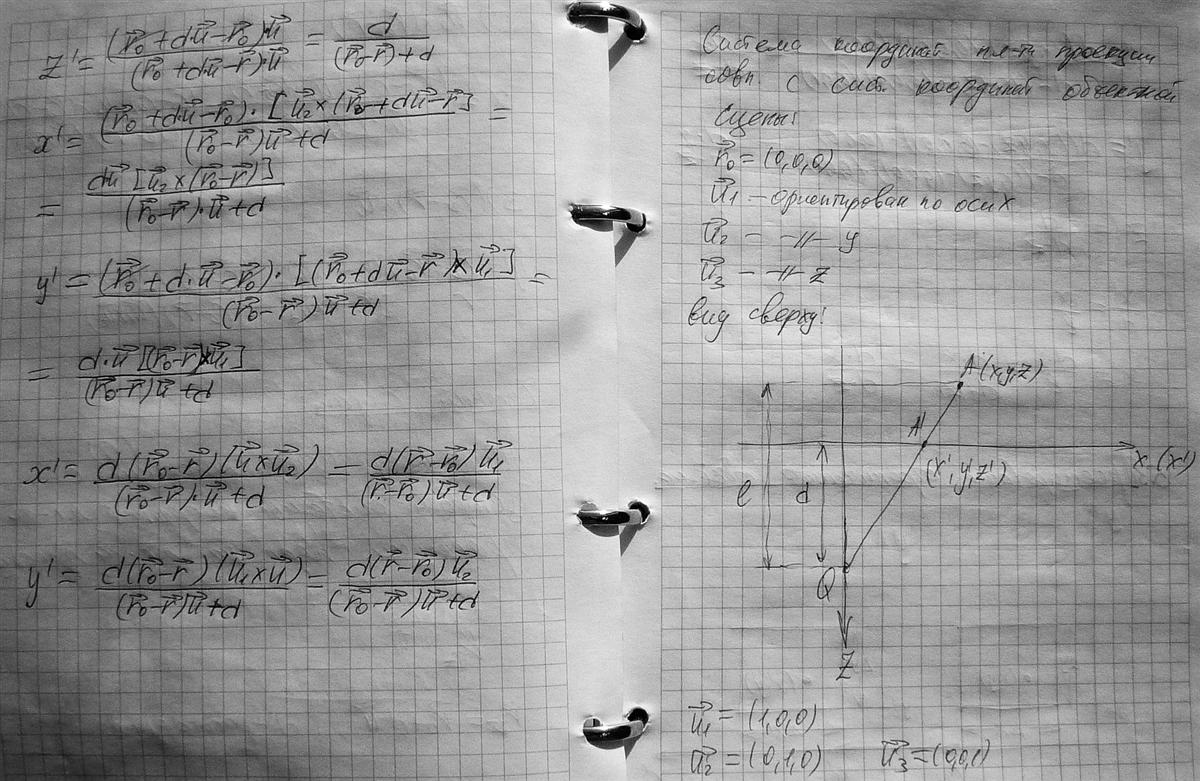 z' = ((r⃗₀ + du⃗ - r⃗₀)·u⃗) / ((r⃗₀ + d·u⃗ - r⃗)·u⃗) = d / ((r⃗₀-r⃗)+d)
x' = ((r⃗₀ + d·u⃗ - r⃗₀)·[u⃗₂×(r⃗₀ + du⃗ - r⃗)]) / ((r⃗₀-r⃗)u⃗+d) =
= (du⃗ [u⃗₂×(r⃗₀-r⃗)]) / ((r⃗₀-r⃗)·u⃗+d)
y' = ((r⃗₀ + d·u⃗ - r⃗₀)·[(r⃗₀ + du⃗ - r⃗)×u⃗₁]) / ((r⃗₀-r⃗)u⃗+d) =
= (d·u⃗ [(r⃗₀-r⃗)×u⃗₁]) / ((r⃗₀-r⃗)u⃗+d)
x' = (d(r⃗₀-r⃗)(u⃗×u⃗₂)) / ((r⃗₀-r⃗)·u⃗+d) = (d(r⃗-r⃗₀)u⃗₁) / ((r⃗-r⃗₀)u⃗+d)
y' = (d(r⃗₀-r⃗)(u⃗₁×u⃗)) / ((r⃗₀-r⃗)u⃗+d) = (d(r⃗-r⃗₀)u⃗₂) / ((r⃗₀-r⃗)u⃗+d)
Система координат пл-ти проекции
совп. с сист. координат объектной
сцены:
r⃗₀ = (0,0,0)
u⃗₁ - ориентирован по оси x
u⃗₂ - -//- y
u⃗₃ - -//- z
вид сверху:
A(x,y,z)
A'
x (x')
(x',y',z')
l
d
Q
z
u⃗₁ = (1,0,0)
u⃗₂ = (0,1,0) u⃗₃ = (0,0,1)